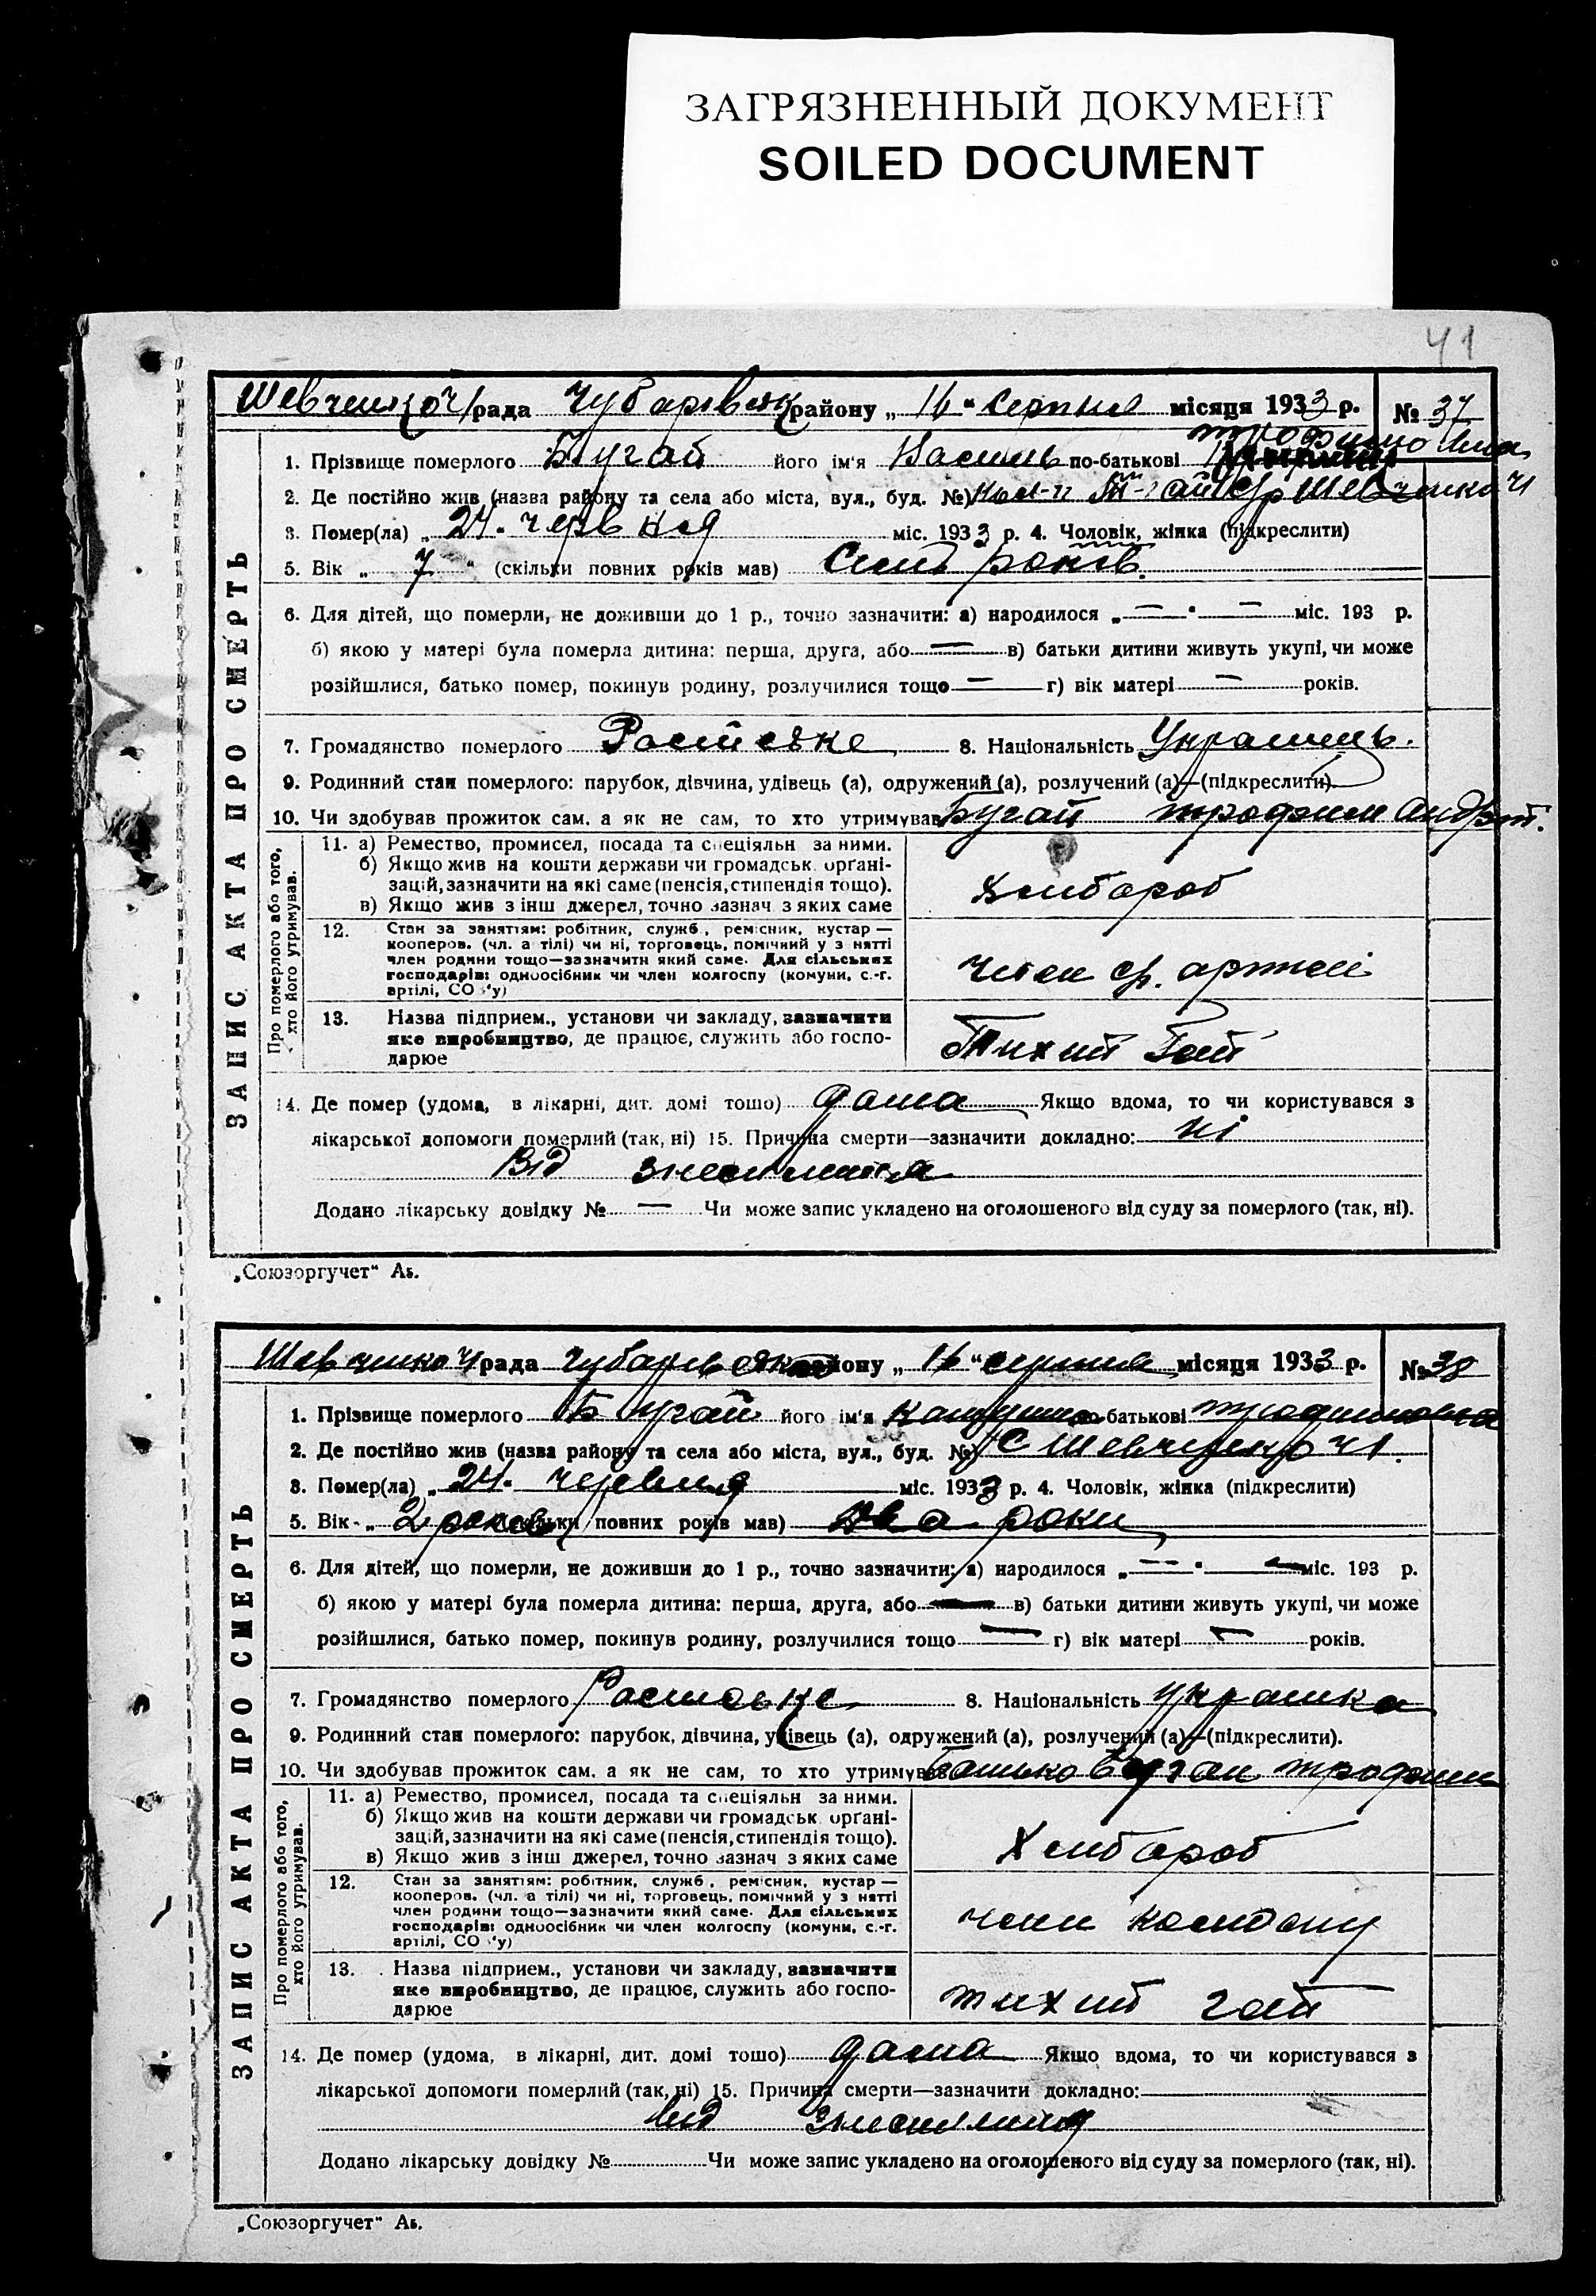 ЗАГРЯЗНЕННЫЙ ДОКУМЕНТ
SOILED DOCUMENT
41
рада Чубарівськ району „ 16 " серпня місяця 1933 р. № 37
1. Прізвище померлого Бугай його ім'я Василь по-батькові
2. Де постійно жив (назва району та села або міста, вул., буд. №)
3. Помер(ла) „ 24. червня міс. 1933 р. 4. Чоловік, жінка (підкреслити)
5. Вік „ 7 " (скільки повних років мав) Сим років.
6. Для дітей, що померли, не доживши до 1 р., точно зазначити: а) народилося „ — " — міс. 193 р.
б) якою у матері була померла дитина: перша, друга, або — в) батьки дитини живуть укупі, чи може
розійшлися, батько помер, покинув родину, розлучилися тощо — г) вік матері — років.
7. Громадянство померлого 8. Національність Українець.
9. Родинний стан померлого: парубок, дівчина, удівець (а), одружений (а), розлучений (а)—(підкреслити)
10. Чи здобував прожиток сам. а як не сам, то хто утримував Бугай Трофим
Про померлого або того, хто його утримував.
11. а) Ремество, промисел, посада та спеціяльн за ними.
б) Якщо жив на кошти держави чи громадськ. орґані-
зацій, зазначити на які саме (пенсія, стипендія тощо).
в) Якщо жив з інш джерел, точно зазнач з яких саме
Хлибороб
12. Стан за заняттям: робітник, служб., ремісник, кустар —
кооперов. (чл. а тілі) чи ні, торговець, помічний у з нятті
член родини тощо—зазначити який саме. Для сільських
господарів: одноосібник чи член колгоспу (комуни, с.-г.
артілі, СО у)
член ср. артилі
13. Назва підприєм., установи чи закладу, зазначити
яке виробництво, де працює, служить або госпо-
дарює
Тихий Гай
14. Де помер (удома, в лікарні, дит. домі тощо) дома Якщо вдома, то чи користувався з
лікарської допомоги померлий (так, ні) 15. Причина смерти—зазначити докладно: ні
Від
Додано лікарську довідку № — Чи може запис укладено на оголошеного від суду за померлого (так, ні).
ЗАПИС АКТА ПРО СМЕРТЬ
„Союзоргучет" Аз.
рада району „ 16 " серпня місяця 1933 р. № 38
1. Прізвище померлого Бугай його ім'я по-батькові
2. Де постійно жив (назва району та села або міста, вул., буд. №)
3. Помер(ла) „ 24. червня міс. 1933 р. 4. Чоловік, жінка (підкреслити)
5. Вік „ 2 повних років мав) Два роки
6. Для дітей, що померли, не доживши до 1 р., точно зазначити: а) народилося „ — " — міс. 193 р.
б) якою у матері була померла дитина: перша, друга, або — в) батьки дитини живуть укупі, чи може
розійшлися, батько помер, покинув родину, розлучилися тощо — г) вік матері — років.
7. Громадянство померлого 8. Національність Українка
9. Родинний стан померлого: парубок, дівчина, удівець (а), одружений (а), розлучений (а)—(підкреслити).
10. Чи здобував прожиток сам. а як не сам, то хто утримував Батько Бугай Трофим
Про померлого або того, хто його утримував.
11. а) Ремество, промисел, посада та спеціяльн за ними.
б) Якщо жив на кошти держави чи громадськ. орґані-
зацій, зазначити на які саме (пенсія, стипендія тощо).
в) Якщо жив з інш джерел, точно зазнач з яких саме
Хлибороб
12. Стан за заняттям: робітник, служб., ремісник, кустар —
кооперов. (чл. а тілі) чи ні, торговець, помічний у з нятті
член родини тощо—зазначити який саме. Для сільських
господарів: одноосібник чи член колгоспу (комуни, с.-г.
артілі, СО у)
член
13. Назва підприєм., установи чи закладу, зазначити
яке виробництво, де працює, служить або госпо-
дарює
тихий гай
14. Де помер (удома, в лікарні, дит. домі тощо) дома Якщо вдома, то чи користувався з
лікарської допомоги померлий (так, ні) 15. Причина смерти—зазначити докладно:
Додано лікарську довідку № Чи може запис укладено на оголошеного від суду за померлого (так, ні).
ЗАПИС АКТА ПРО СМЕРТЬ
„Союзоргучет" Аз.